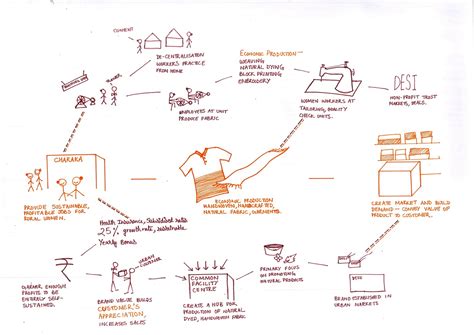 DE-CENTRALISATION
WORKERS PRACTICE
FROM HOME
EMPLOYEES AT UNIT
PRODUCE FABRIC
ECONOMIC PRODUCTION—
WEAVING
NATURAL DYING
BLOCK PRINTING
EMBROIDERY
WOMEN WORKERS AT
TAILORING, QUALITY
CHECK UNITS.
DESI
NON-PROFIT TRUST
MARKETS, DEALS.
CHARAKA
PROVIDE SUSTAINABLE,
PROFITABLE JOBS FOR
RURAL WOMEN.
ECONOMIC PRODUCTION
HANDWOVEN, HANDCRAFTED,
NATURAL FABRIC, GARMENTS.
CREATE MARKET AND BUILD
DEMAND— CONVEY VALUE OF
PRODUCT TO CUSTOMER.
Health Insurance,
25% growth rate, sustainable
Yearly Bonus
₹
URBAN CUSTOMER
GARNER ENOUGH
PROFITS TO BE
ENTIRELY SELF-
SUSTAINED.
BRAND VALUE BUILDS
CUSTOMER'S
APPRECIATION,
INCREASES SALES
COMMON
FACILITY
CENTRE
CREATE A HUB FOR
PRODUCTION OF NATURAL
DYED, HANDWOVEN FABRIC
PRIMARY FOCUS
ON PROMOTING
NATURAL
PRODUCTS
BRAND ESTABLISHED IN
URBAN MARKETS